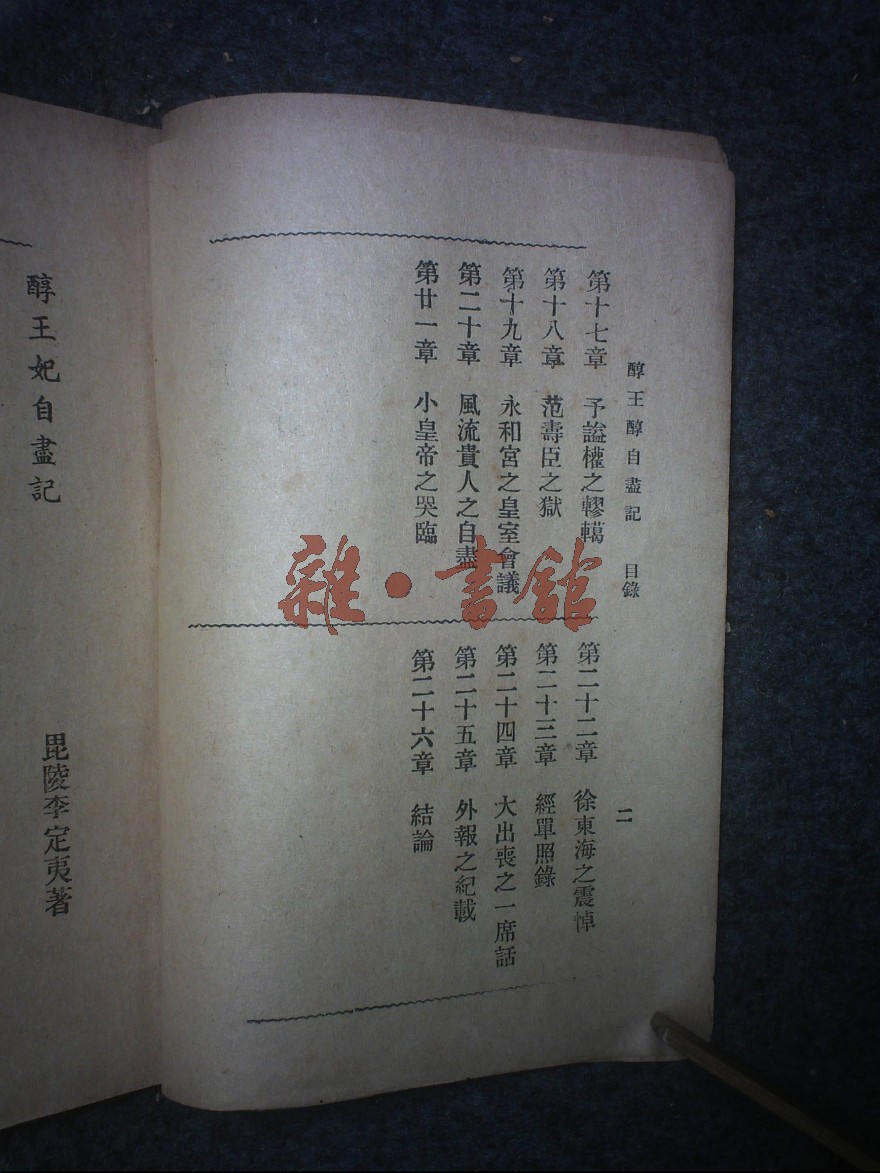 醇王醇自盡記 目錄 二
第十七章 予謚權之轇轕
第十八章 范壽臣之獄
第十九章 永和宮之皇室會議
第二十章 風流貴人之自盡
第廿一章 小皇帝之哭臨
第二十二章 徐東海之震悼
第二十三章 經單照錄
第二十四章 大出喪之一席話
第二十五章 外報之紀載
第二十六章 結論
醇王妃自盡記
毘陵李定夷著
雜·書館